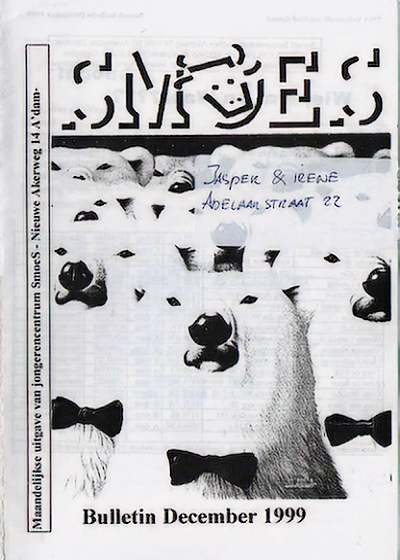 SMOES
JASPER & IRENE
ADELAARSTRAAT 22
Maandelijkse uitgave van jongerencentrum SmoeS - Nieuwe Akerweg 14 A'dam-
Bulletin December 1999